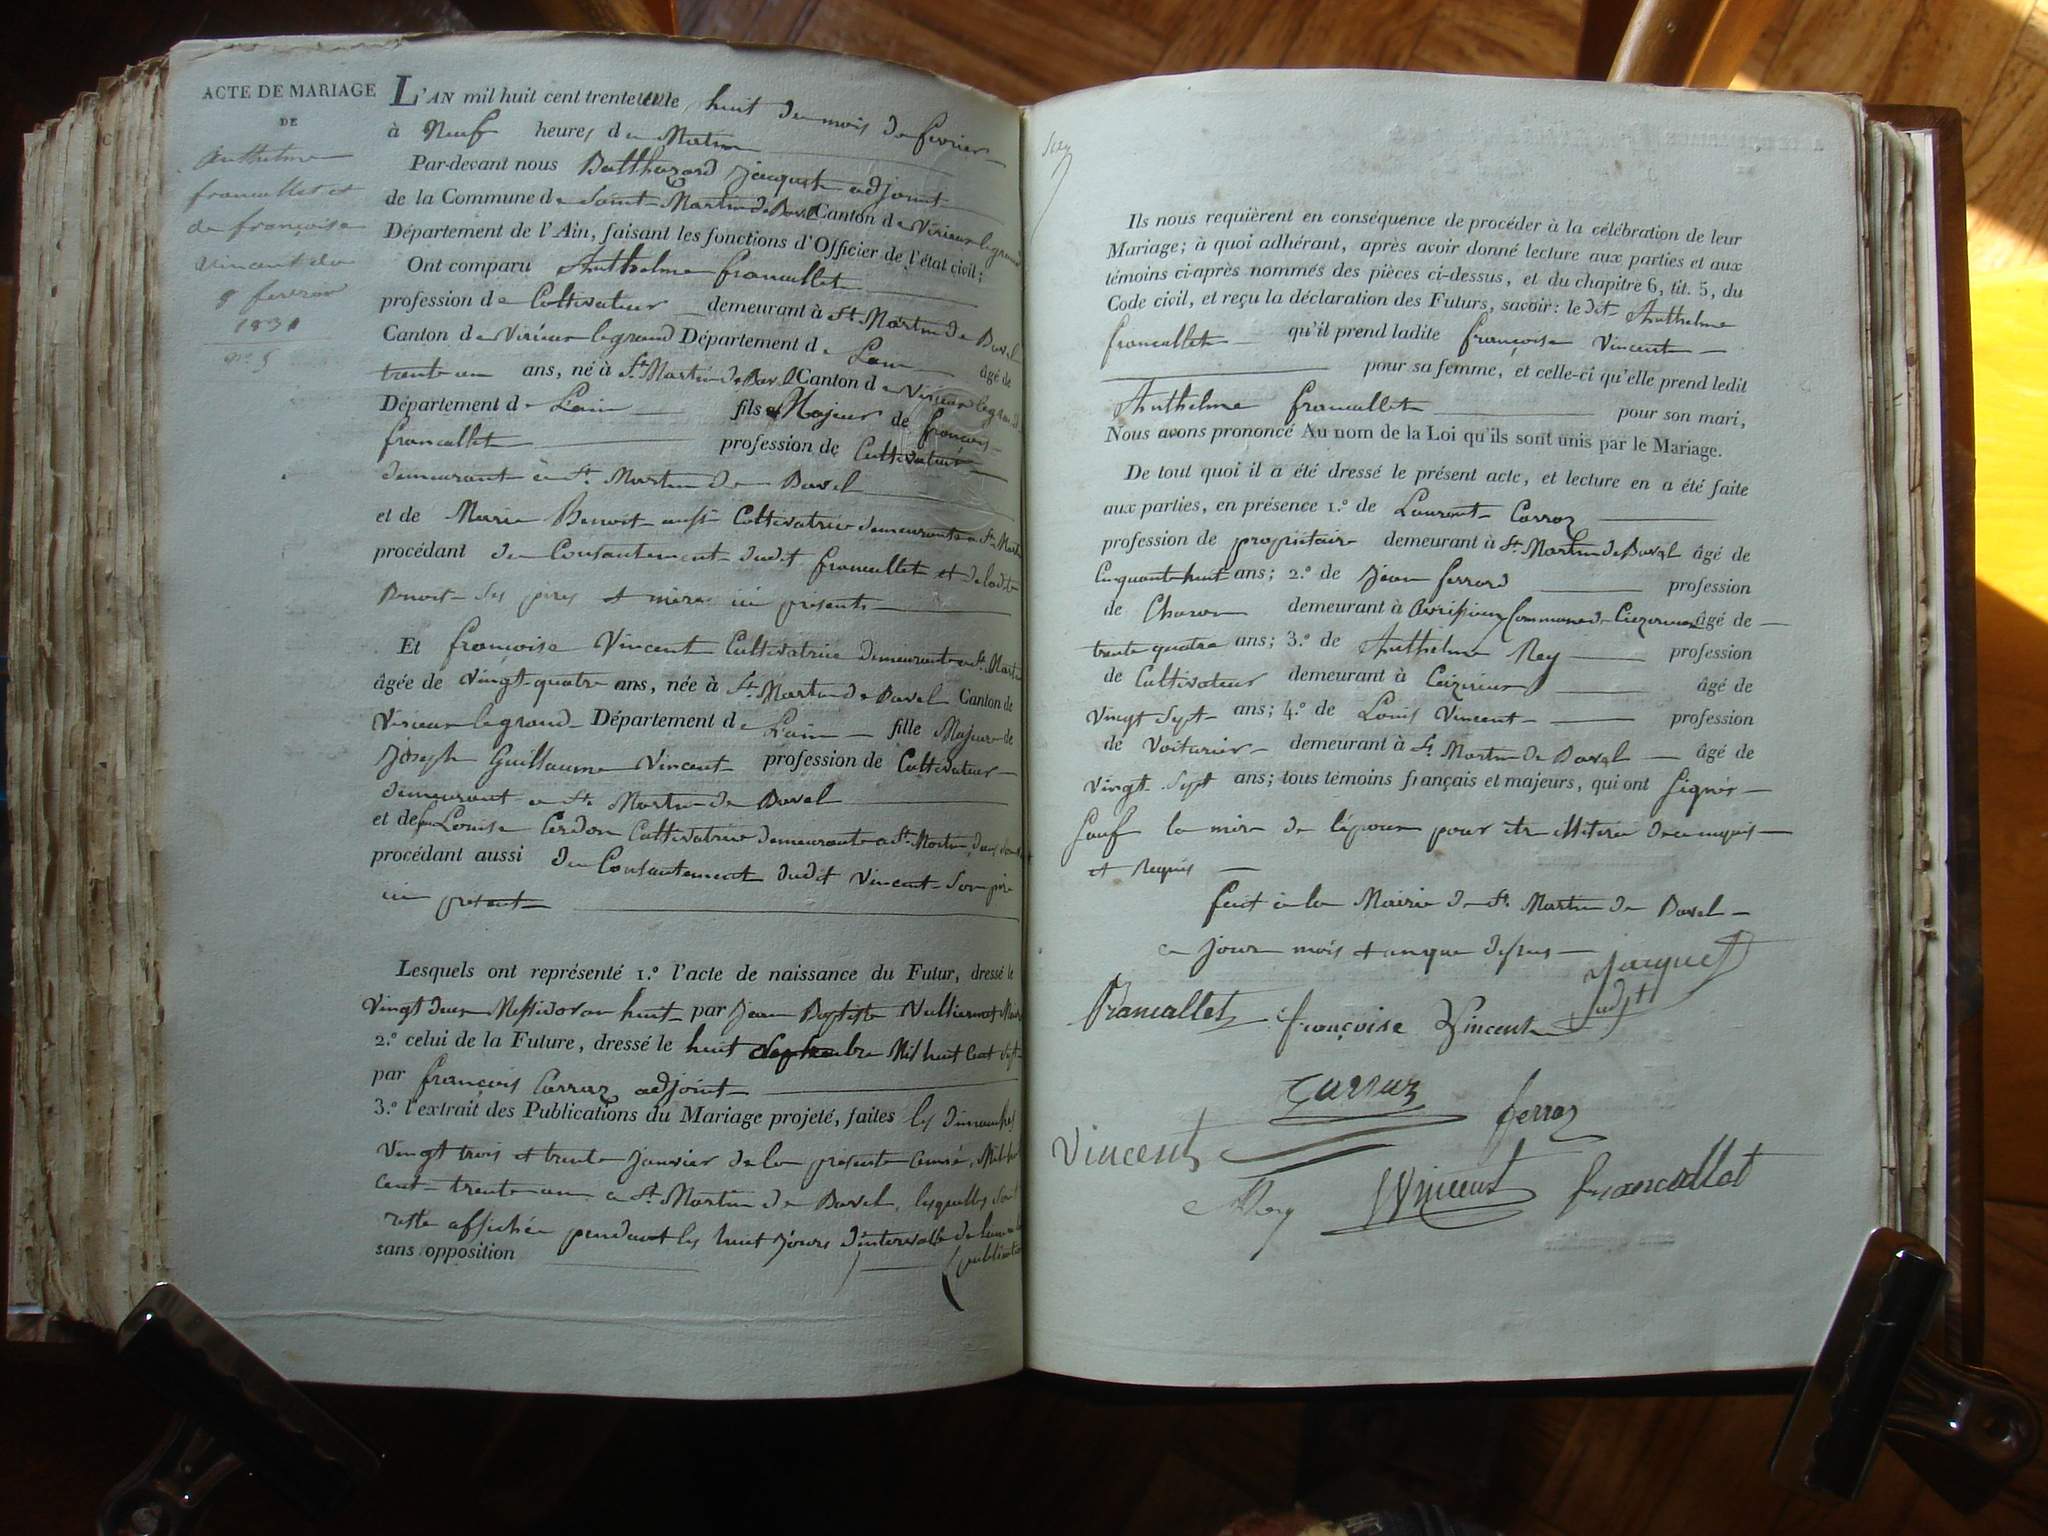 ACTE DE MARIAGE
DE
Anthelme
francallet et
de françoise
Vincent du
8 fevrier
1831
n.° 5
L'AN mil huit cent trente un le huit du mois de fevrier
à Neuf heures du Matin
Par-devant nous Balthazard Jacquet adjoint
de la Commune de Saint-Martin de Bavel Canton de Virieux legrand
Département de l'Ain, faisant les fonctions d'Officier de l'état civil;
Ont comparu Anthelme francallet
profession de Cultivateur demeurant à St. Martin de Bavel
Canton de Virieux legrand Département de Lain âgé de
trente un ans, né à St. Martin de Bavel Canton de Virieux legrand
Département de L'ain fils Majeur de françois
francallet profession de Cultivateur
demeurant à St. Martin de Bavel
et de Marie Benoit aussi Cultivatrice demeurante a St. Martin
procédant du Consentement dudit francallet et de ladite
Benoit ses pères et mère ici présents
Et françoise Vincent Cultivatrice demeurante a St. Martin
âgée de vingt-quatre ans, née à St. Martin de Bavel Canton de
Virieux legrand Département de L'ain fille Majeure de
Joseph Guillaume Vincent profession de Cultivateur
demeurant a St. Martin de Bavel
et de Louise Cerdon Cultivatrice demeurante a St. Martin
procédant aussi du Consentement dudit Vincent Son père
ici présent
Lesquels ont représenté 1.° l'acte de naissance du Futur, dressé le
Vingt deux Messidor an huit par Jean Baptiste Vulliermet Maire
2.° celui de la Future, dressé le huit Mil huit Cent Sept
par françois Carraz adjoint
3.° l'extrait des Publications du Mariage projeté, faites les dimanches
Vingt trois et trente Janvier de la présente année, Mil huit
cent trente un a St. Martin de Bavel, lesquelles sont
resté affichée pendant les huit Jours d'intervalle de l'une a
sans opposition publication
Ils nous requièrent en conséquence de procéder à la célébration de leur
Mariage; à quoi adhérant, après avoir donné lecture aux parties et aux
témoins ci-après nommés des pièces ci-dessus, et du chapitre 6, tit. 5, du
Code civil, et reçu la déclaration des Futurs, savoir: le dit Anthelme
francallet qu'il prend ladite françoise Vincent
pour sa femme, et celle-ci qu'elle prend ledit
Anthelme francallet pour son mari,
Nous avons prononcé Au nom de la Loi qu'ils sont unis par le Mariage.
De tout quoi il a été dressé le présent acte, et lecture en a été faite
aux parties, en présence 1.° de Laurent Carraz
profession de propriétaire demeurant à St. Martin de Bavel âgé de
Cinquante huit ans; 2.° de Jean ferrand profession
de Charon demeurant à Avrissieux Commune de âgé de
trente quatre ans; 3.° de Anthelme Rey profession
de Cultivateur demeurant à Ceizerieux âgé de
Vingt Sept ans; 4.° de Louis Vincent profession
de Voiturier demeurant à St. Martin de Bavel âgé de
Vingt Sept ans; tous témoins français et majeurs, qui ont Signés
Sauf la mère de l'époux pour être illiterée de ce enquis
et Requis
fait à la Mairie de St. Martin de Bavel
ce Jour mois et an que dessus
Jacquet
adjt
francallet françoise Vincent
Carraz ferraz
Vincent
Rey Vincent francallet